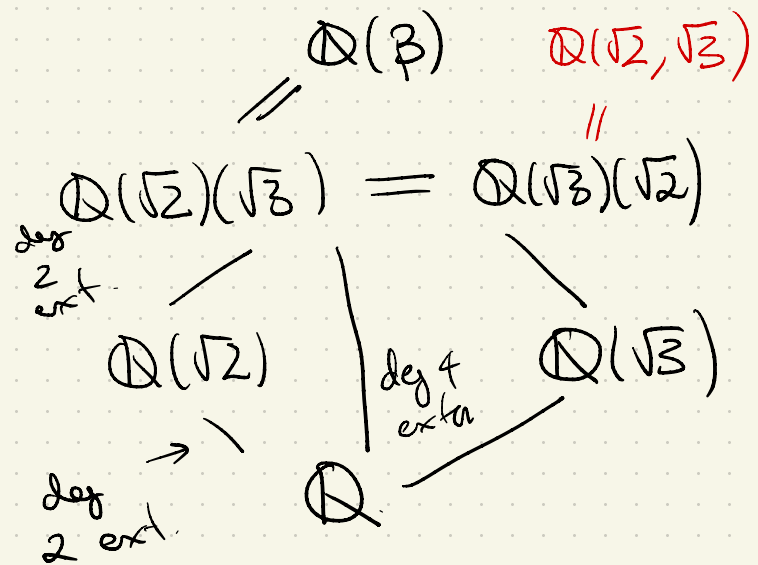 ℚ(β)
ℚ(√2, √3)
=
=
ℚ(√2)(√3) = ℚ(√3)(√2)
deg
2
ext.
ℚ(√2)
deg 4
extn
ℚ(√3)
→
deg
2 ext.
ℚ